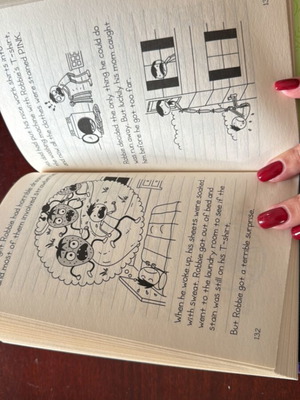 Robbie had horrible
and most of them involved
When he woke up, his sheets were soaked
with sweat. Robbie got out of bed and
went to the laundry room to see if the
stain was still on his T-shirt.
But Robbie got a terrible surprise.
132
his mom's work shirts into
machine along with Robbie's T-shirt,
all the clothes were stained PINK.
Robbie decided the only thing he could do
was run away. But luckily his mom caught
him before he got too far.